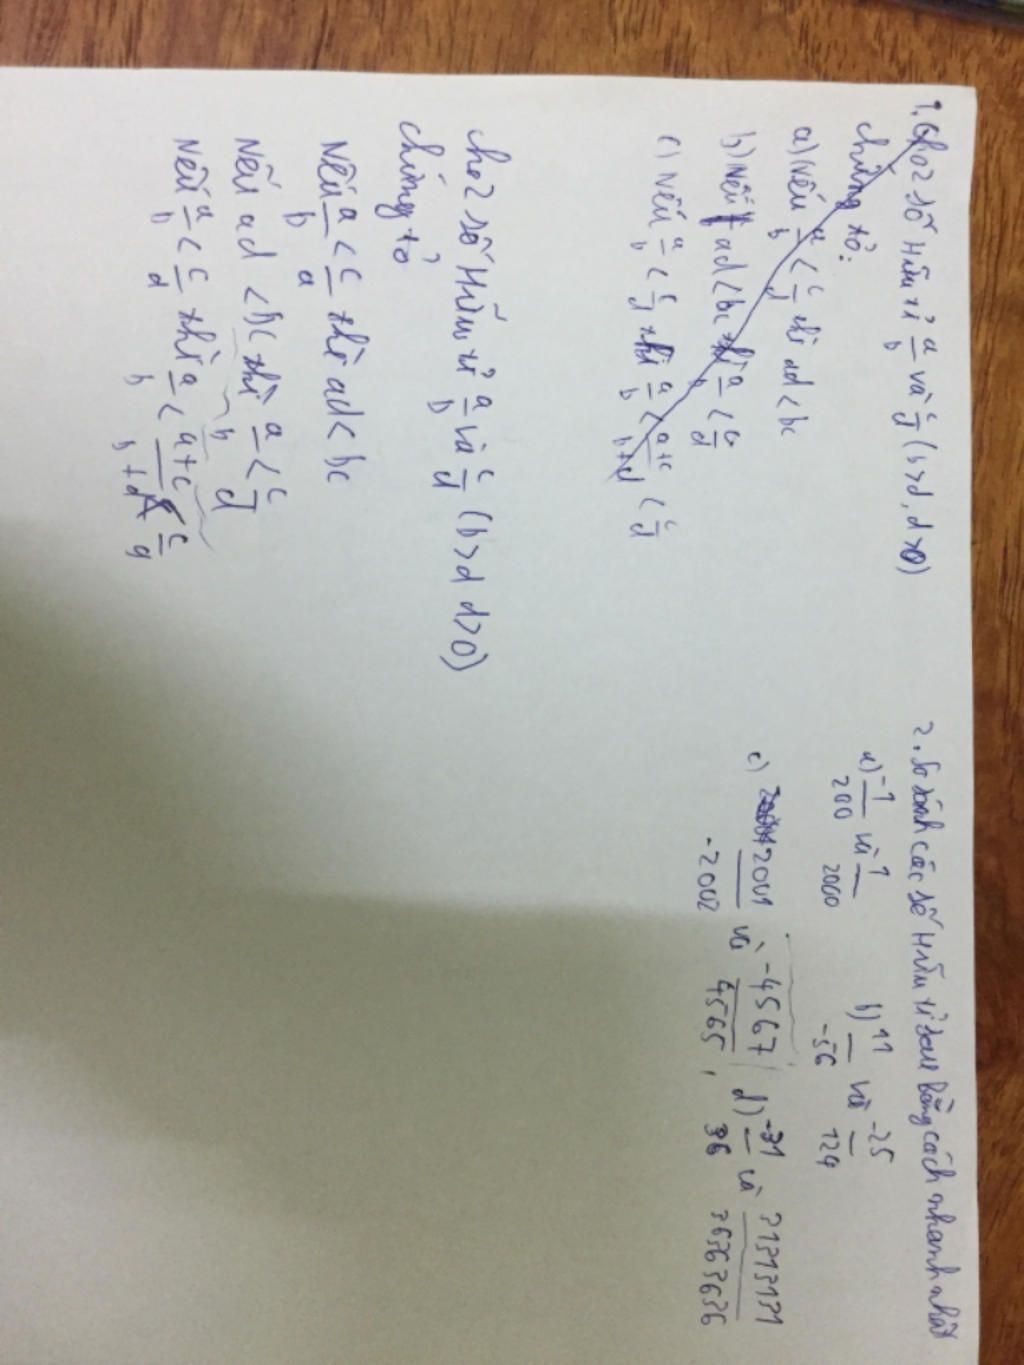 1. Cho 2 số Hữu tỉ a/b và c/d (b>d, d>0)
chứng tỏ:
a) Nếu a/b < c/d thì ad < bc
b) Nếu ad < bc thì a/b < c/d
c) Nếu a/b < c/d thì a/b < a+c/b+d < c/d
cho 2 số Hữu tỉ a/b và c/d (b>d d>0)
chứng tỏ
Nếu a/b < c/d thì ad < bc
Nếu ad < bc thì a/b < c/d
Nếu a/b < c/d thì a/b < a+c/b+d < c/d
2. So sánh các số Hữu tỉ sau bằng cách nhanh nhất
a) -1/200 và 1/2000 b) 11/-56 và -25/124
c) 2001/-2002 và -4567/4565, d) -31/36 và 31313131/36363636